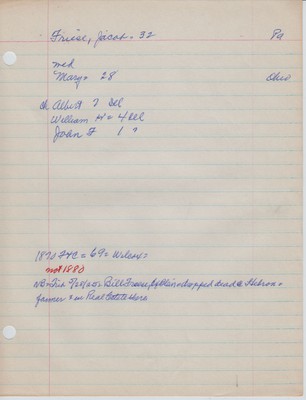 Friese, Jacob = 32 Pa
md
Mary = 28 Ohio
ch Albert 7 Del
William H = 4 Del
John F 1 "
1870 FFC = 69 = Wilcox =
not 1880
NB = Fri 5/20/20 = Bill Friese, dropped dead @ Hebron =
farmer + in Real Estate